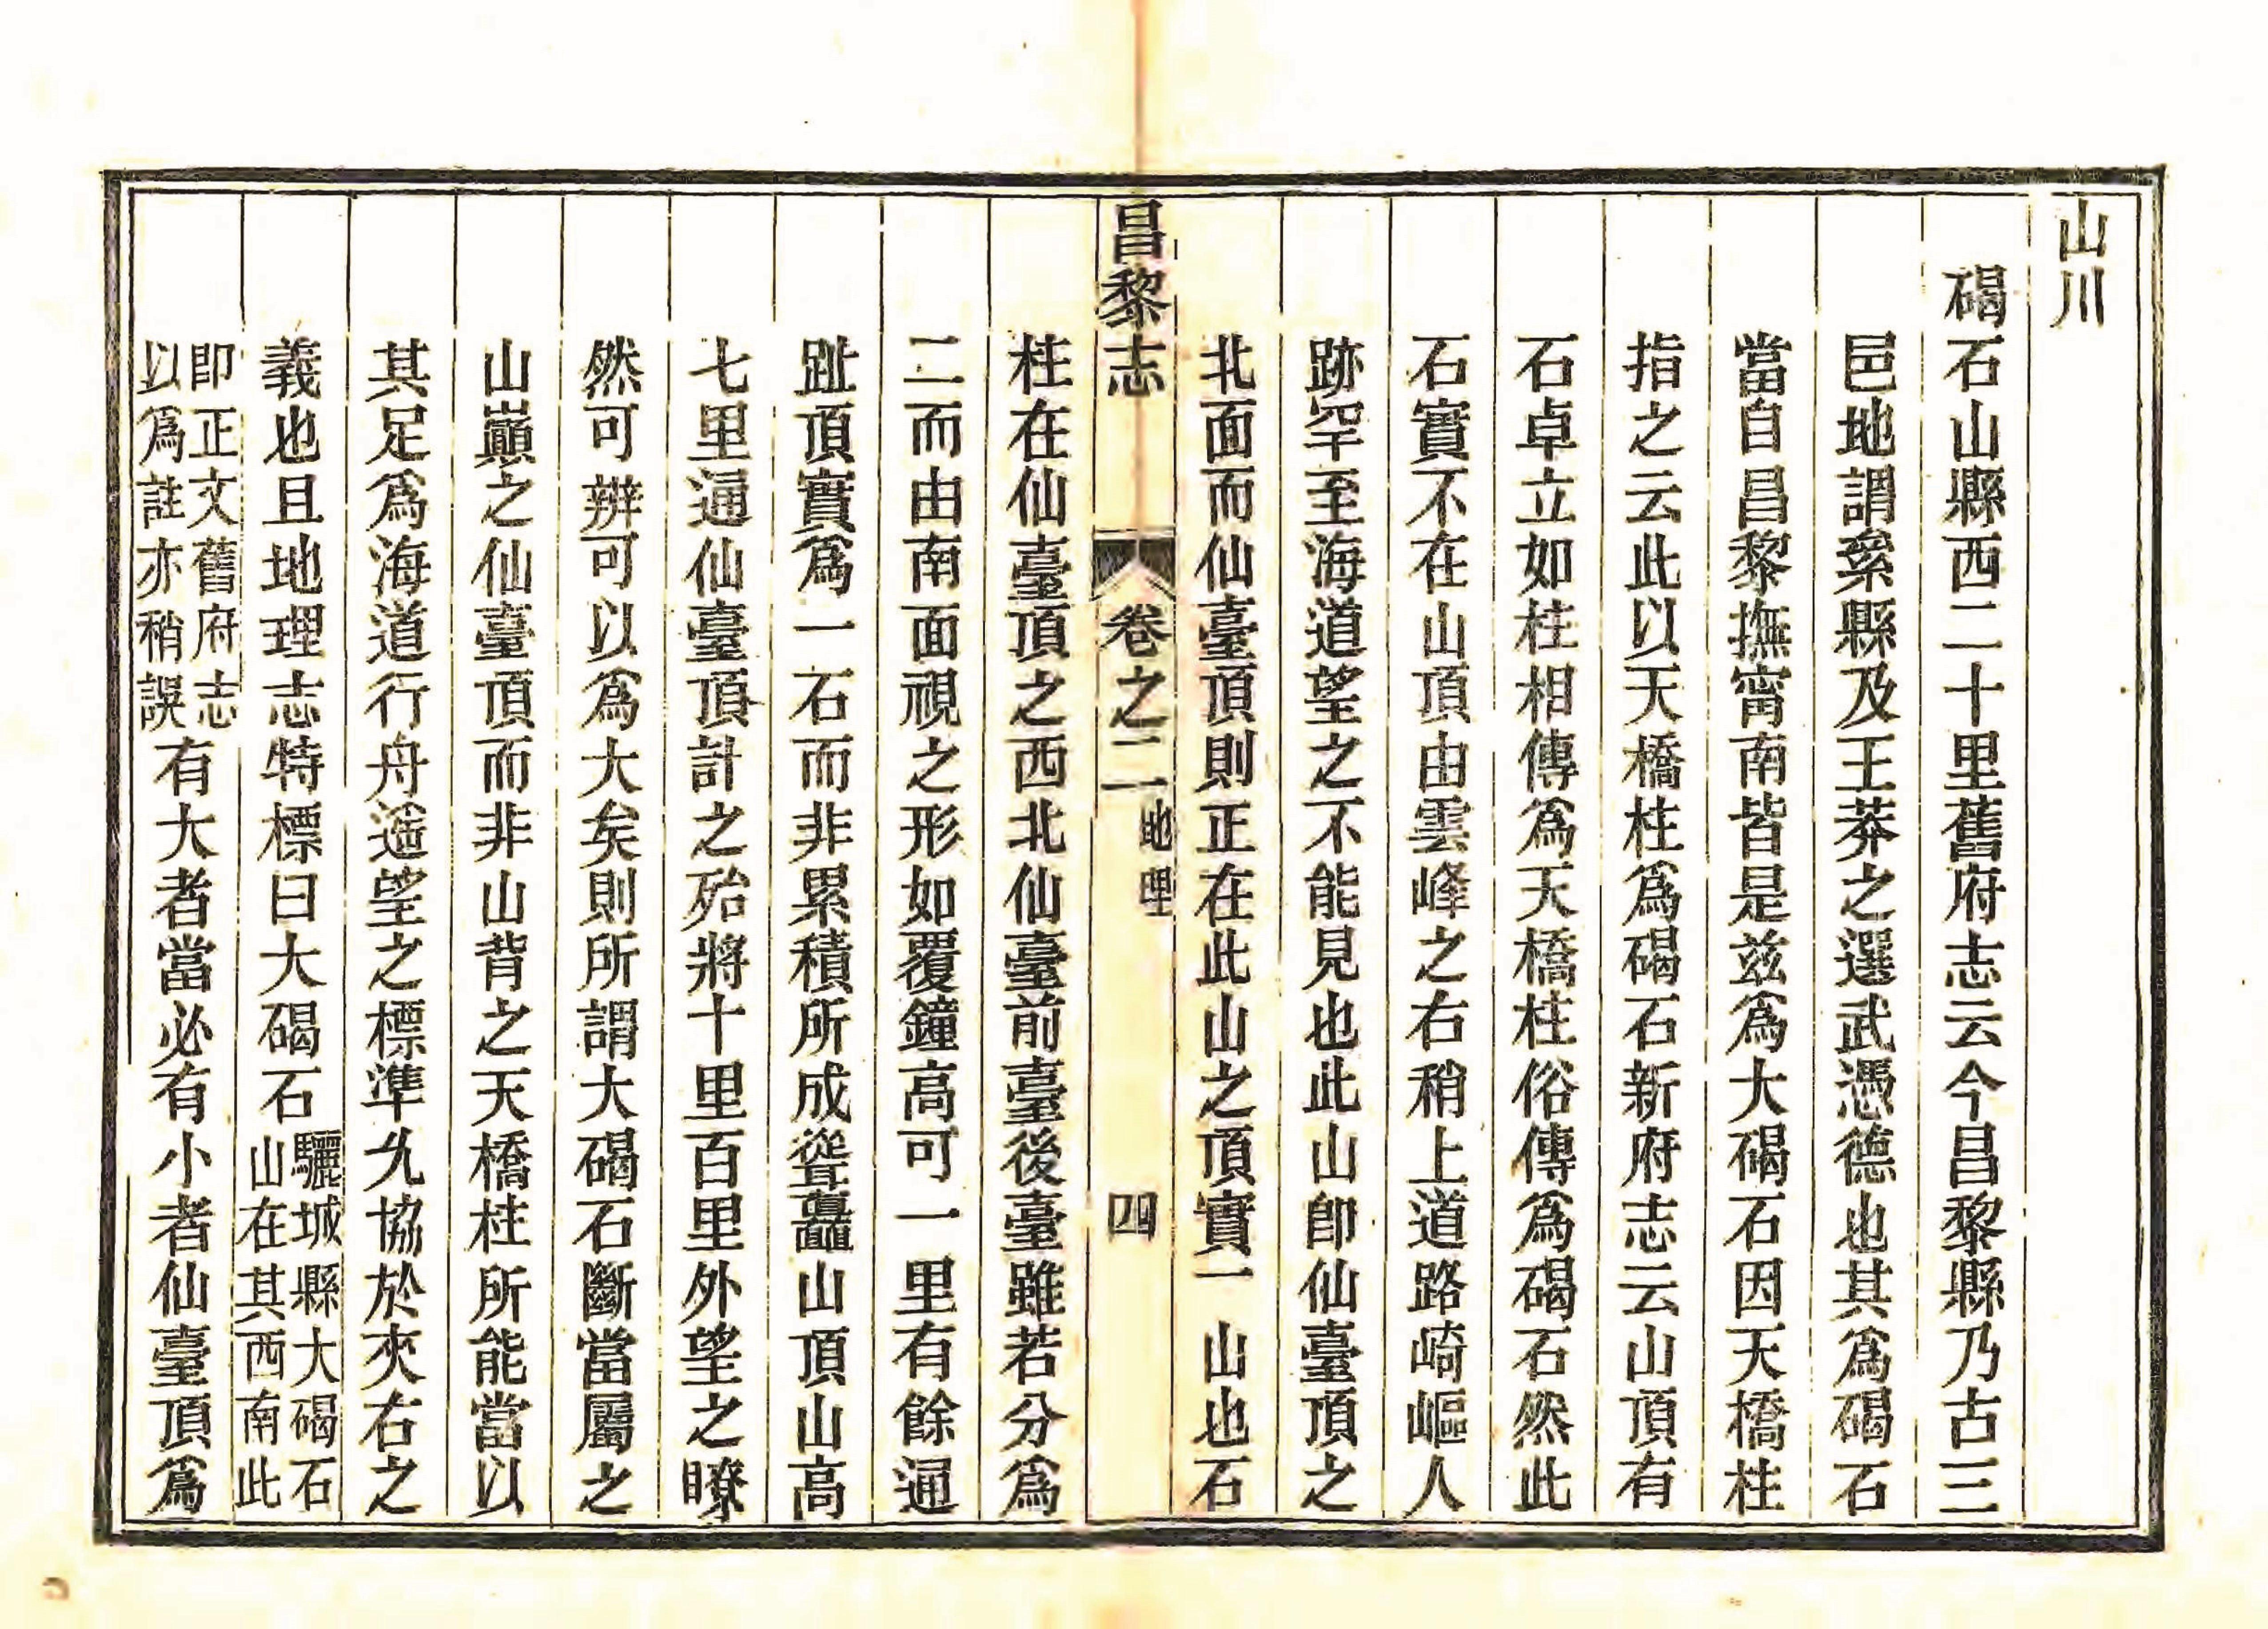 山川
碣石山縣西二十里舊府志云今昌黎縣乃古三
邑地謂絫縣及王莽之選武憑德也其爲碣石
當自昌黎撫甯南皆是茲爲大碣石因天橋柱
指之云此以天橋柱爲碣石新府志云山頂有
石卓立如柱相傳爲天橋柱俗傳爲碣石然此
石實不在山頂由雲峰之右稍上道路崎嶇人
跡罕至海道望之不能見也此山卽仙臺頂之
北面而仙臺頂則正在此山之頂實一山也石
昌黎志 卷之二 地理 四
柱在仙臺頂之西北仙臺前臺後臺雖若分爲
二而由南面視之形如覆鐘高可一里有餘通
趾頂實爲一石而非累積所成聳矗山頂山高
七里通仙臺頂計之殆將十里百里外望之瞭
然可辨可以爲大矣則所謂大碣石斷當屬之
山巓之仙臺頂而非山背之天橋柱所能當以
其足爲海道行舟遙望之標準允協於夾右之
義也且地理志特標曰大碣石驪城縣大碣石
山在其西南此
卽正文舊府志
以爲註亦稍誤有大者當必有小者仙臺頂爲